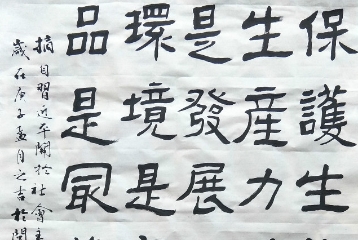 保護生
生產力
是發展
環境是
品是最
摘自習近平關於社會主
歲在庚子孟月之吉於閩